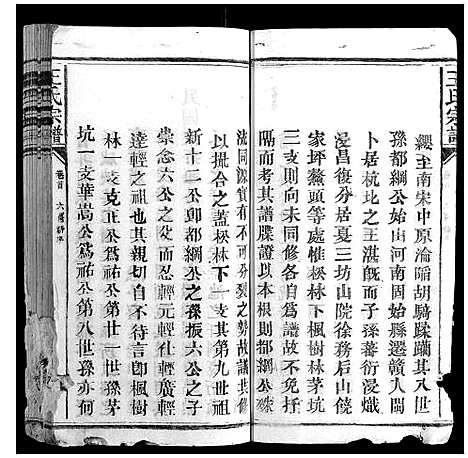 王氏宗譜
纓至南宋中原淪陷胡騎蹂躪其八世
孫都綱公始由河南固始縣遷贛人閩
卜居杭北之王湛旣而子孫蕃衍浸熾
浸昌復分居夏三坊山院徐務后山饒
家坪鰲頭等處惟杉林下楓樹林茅坑
三支則向未同修各自為譜故不免扞
隔而考其譜牒證以本根則都綱公殊
流同源實有不可分裂之勢茲謀共修
以撮合之蓋杉林下一支其第九世祖
新十二公卽都綱公之孫振六公之子
崇念六公之父而忍輕元輕仕輕廣輕
達輕之祖也其親切自不待言卽楓樹
林一支克正公為祐公第廿一世孫茅
坑一支華嵩公為祐公第八世孫亦何
王氏宗譜
卷首
六修新序